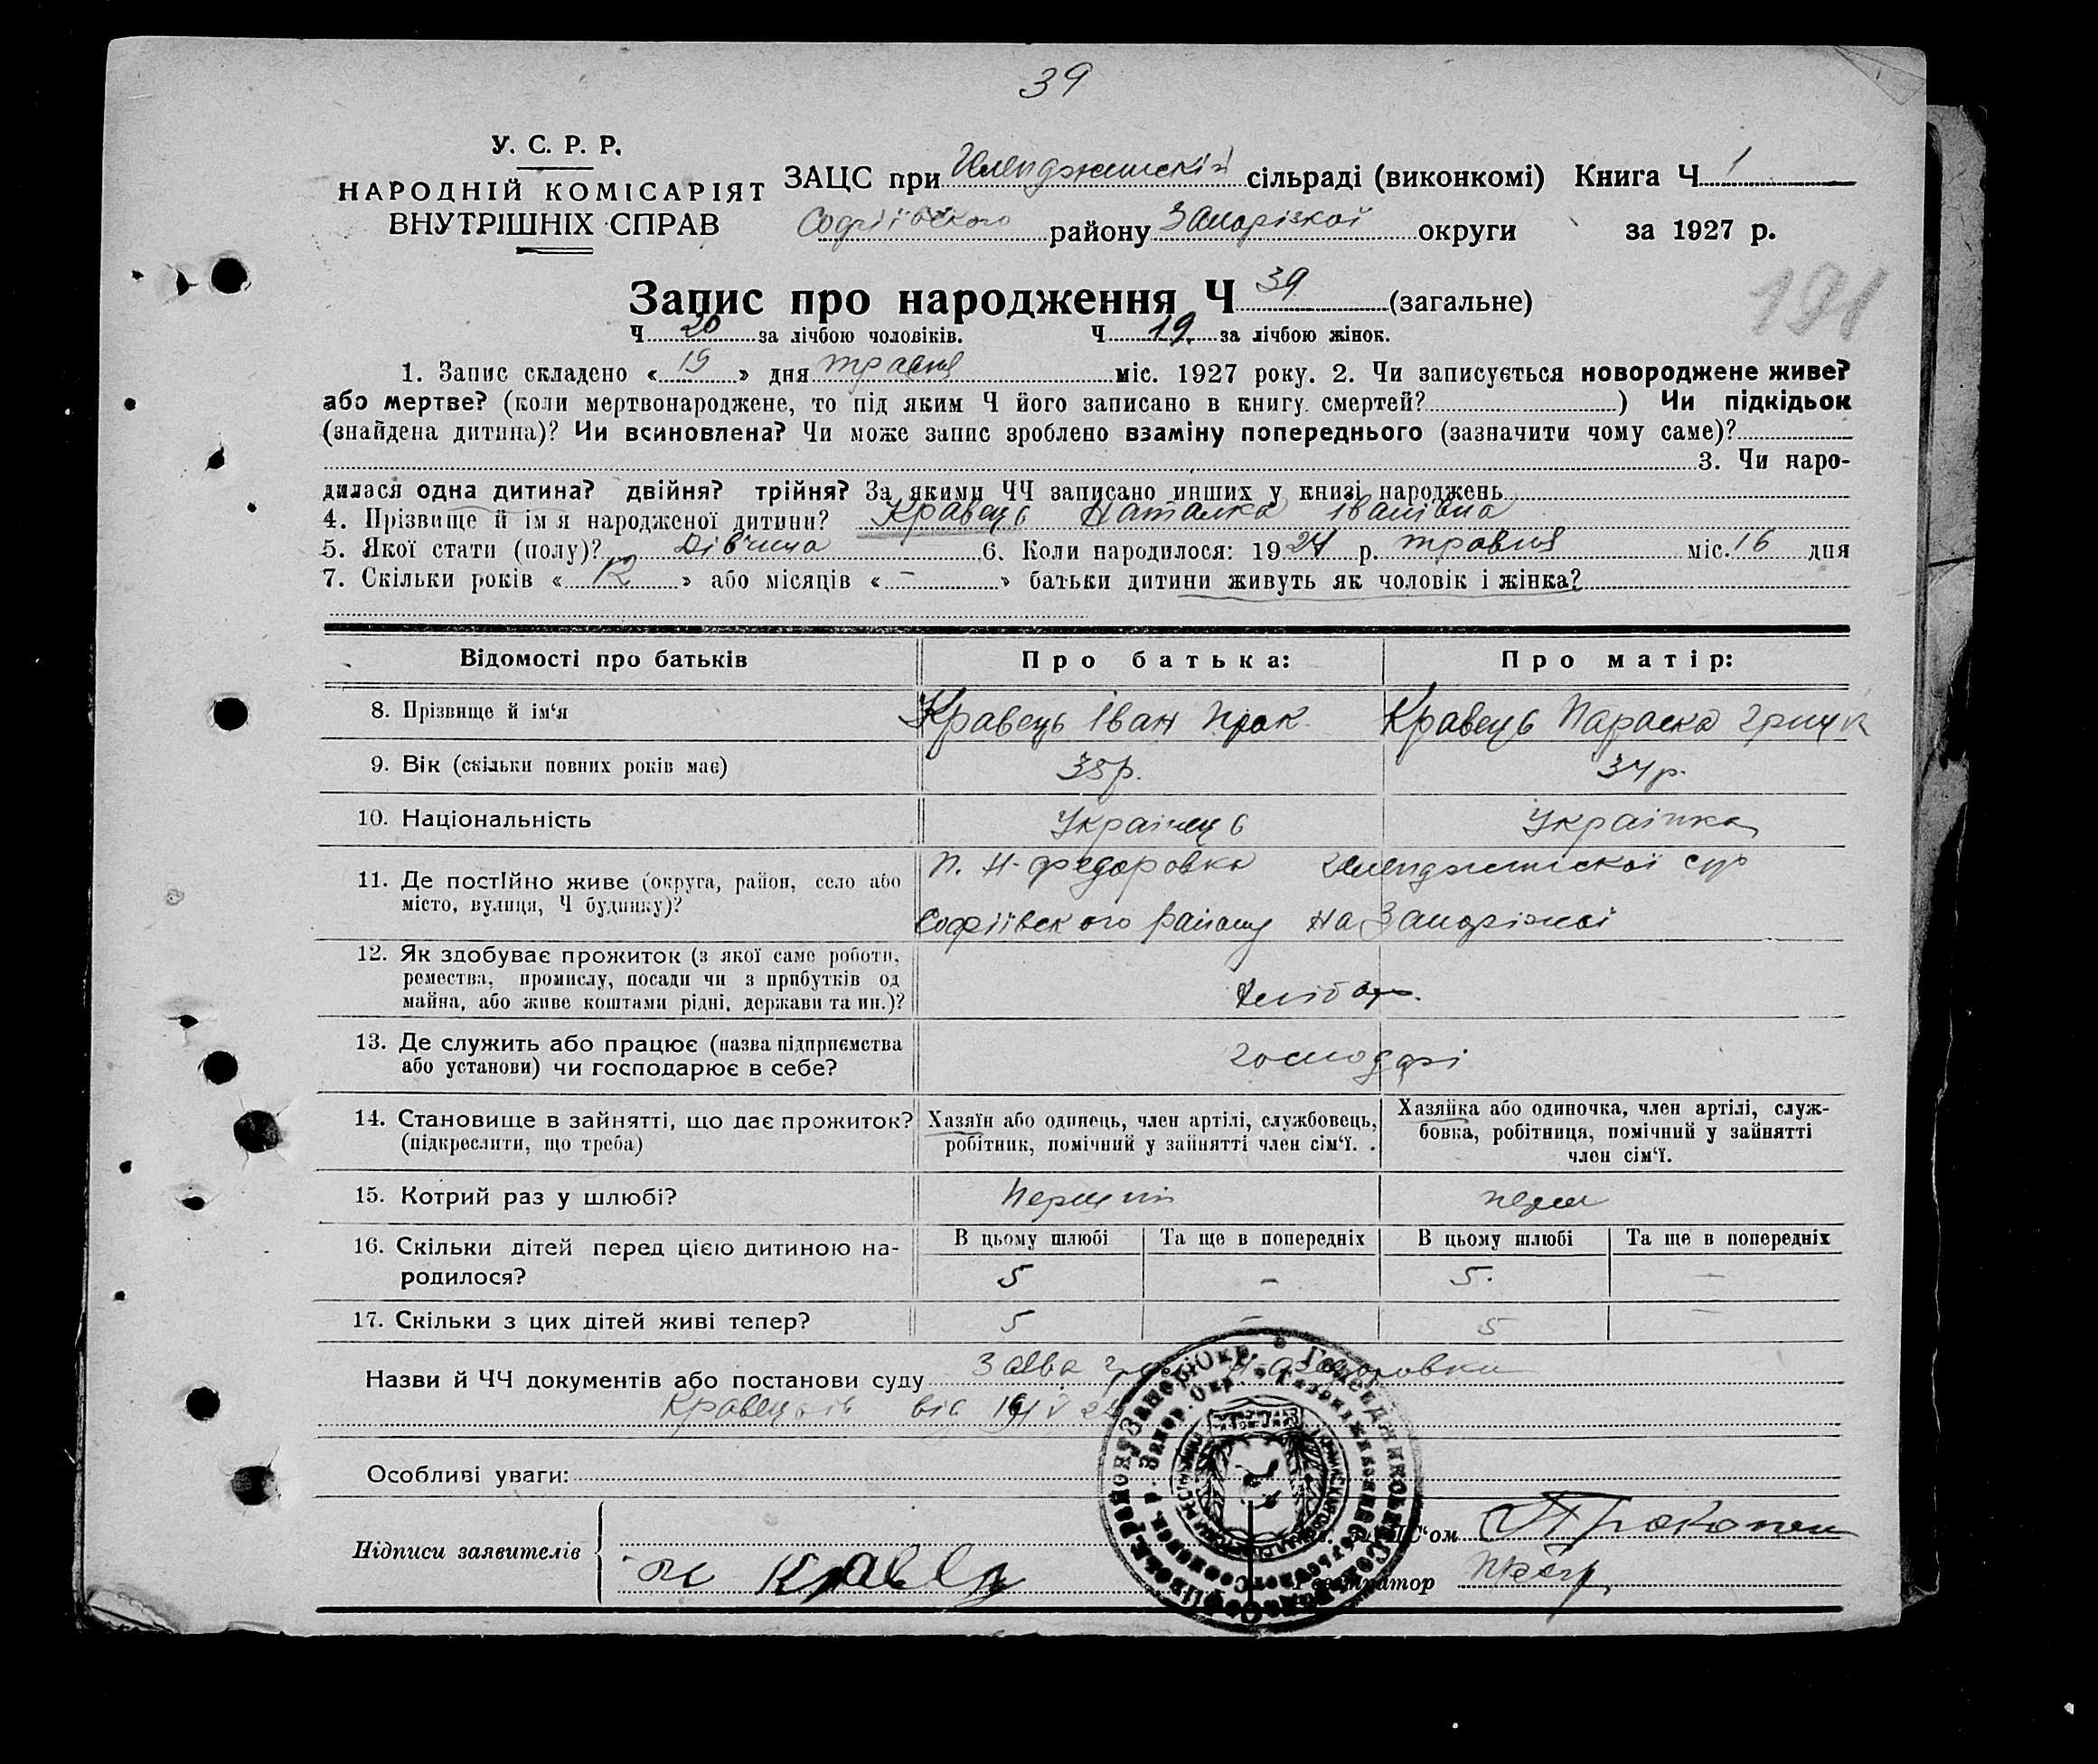 39
У. С. Р. Р.
НАРОДНІЙ КОМІСАРІЯТ
ВНУТРІШНІХ СПРАВ
ЗАЦС при сільраді (виконкомі) Книга Ч 1
Софіївського району Запорізкої округи за 1927 р.
191
Запис про народження Ч 39 (загальне)
Ч 20 за лічбою чоловіків. Ч 19 за лічбою жінок.
1. Запис складено « 19 » дня травня міс. 1927 року. 2. Чи записується новороджене живе?
або мертве? (коли мертвонароджене, то під яким Ч його записано в книгу смертей? ) Чи підкідьок
(знайдена дитина)? Чи всиновлена? Чи може запис зроблено взаміну попереднього (зазначити чому саме)?
3. Чи наро-
дилася одна дитина? двійня? трійня? За якими ЧЧ записано инших у книзі народжень
4. Прізвище й ім'я народженої дитини? Кравець Наталка Іванівна
5. Якої стати (полу)? Дівчина 6. Коли народилося: 1927 р. травня міс. 16 дня
7. Скільки років « 12 » або місяців « – » батьки дитини живуть як чоловік і жінка?
Відомості про батьків Про батька: Про матір:
8. Прізвище й ім‘я Кравець Іван Прок. Кравець Параска Грицк
9. Вік (скільки повних років має) 38р. 34р.
10. Національність Українець Українка
11. Де постІйно живе (округа, район, село або П. Н-Федоровка
місто, вулиця, Ч будинку)? Софіївского району на Запоріжжі
12. Як здобуває прожиток (з якої саме роботи,
ремества, промислу, посади чи з прибутків од
майна, або живе коштами рідні, держави та ин.)? Хлібор.
13. Де служить або працює (назва підприємства
або установи) чи господарює в себе? господарі
14. Становище в зайнятті, що дає прожиток?
(підкреслити, що треба)
Хазяїн або одинець, член артілі, службовець,
робітник, помічний у зайнятті член сім‘ї.
Хазяйка або одиночка, член артілі, служ-
бовка, робітниця, помічний у зайнятті
член сім‘ї.
15. Котрий раз у шлюбі? Перший перш
16. Скільки дітей перед цією дитиною на-
родилося?
В цьому шлюбі Та ще в попередніх В цьому шлюбі Та ще в попередніх
5 – 5. –
17. Скільки з цих дітей живі тепер? 5 – 5 –
Назви й ЧЧ документів або постанови суду Заява гр
від
Особливі уваги:
Підписи заявителів
Кравец
С‘ом
Реєстратор